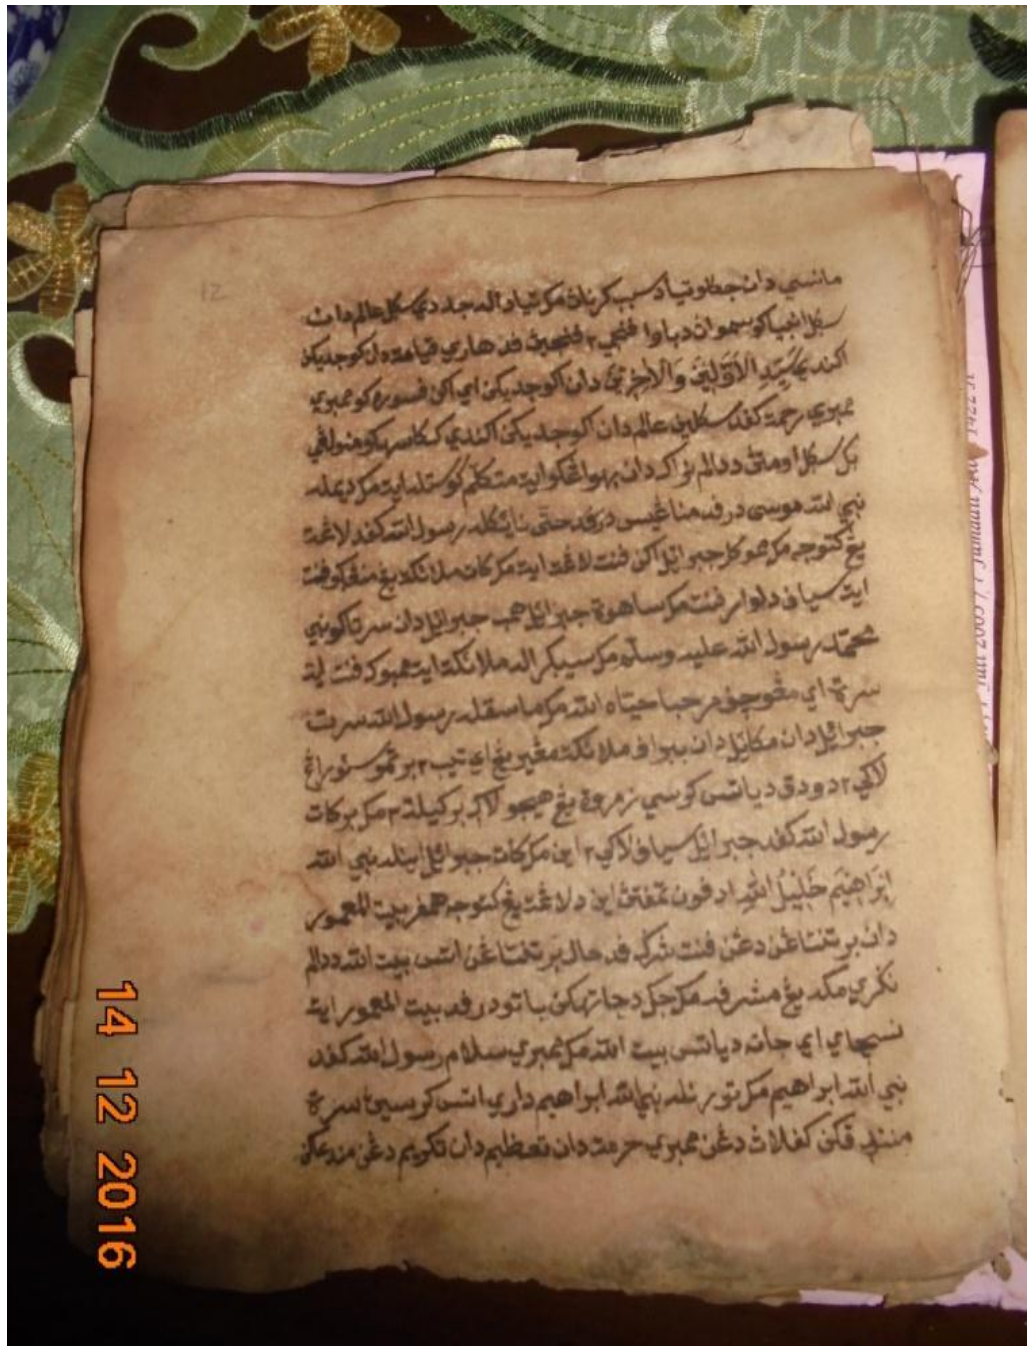 12
مانسي دان جكلو تياد سبب كرنان مك تياد اله جددي سكل عالم دان
سكل انبيا كو سموان دباوا فنجي ٢ فنجين فد هاري قيامة دان كوجديكن
اكندي سَيِّدِ الْاَوَّلِيْنَ وَالْاٰخِرِيْنَ دان اكو جديكن اي اكن فسوره كو ممبري
ممبري رحمة كفد سكلين عالم دان اكو جديكن اكندي ككاسهكو
بك سكل اومتڽ ددالم نراك دان بهوا اڠكو ايت متكلم كو ستله ايت مك
نبي الله موسى در فد مناڠيس درفد حتى نايكله رسول الله كفد لاڠة
يڠ كتوجه مك مموكل جبرائيل اكن فنت لاڠة ايت مك كات ملائكة يڠ منڠكو فنت
ايت سياف دلوار فنت مك ساهوة جبرائيل همب جبرائيل دان سرتاكو نبي
محمد رسول الله عليه وسلم مك سيكراله ملائكة ايت ممبوك فنت ايت
سرت اي مڠوجڤ مرحبا حياه الله مك ماسقله رسول الله سرت
جبرائيل دان مكائيل دان ببراف ملائكة مڠيريڠ اي تيب ٢ برتمو سئورڠ
لاكي ٢ دودق دياتس كرسي زمرد يڠ هيجو لاڬي بركيلة ٢ مك بركات
رسول الله كفد جبرائيل سياف لاكي ٢ اين مك كات جبرائيل اينله نبي الله
اِبْرَاهِيْم خَلِيْلُ اللهِ ادفون تمفتڽ اين دلاڠة يڠ كتوجه همفر بيت المعمور
دان برتنتاڠن دڠن فنت شرك فد حال برتنتاڠن اتس بيت الله ددالم
نكري مكه يڠ مشرفه مك جك دجاتهكن باتو در فد بيت المعمور ايت
نسچاي اي جاته دياتس بيت الله مك ممبري سلام رسول الله كفد
نبي الله ابراهيم مك تورنله نبي الله ابراهيم داري اتس كرسين سرت
كفلاڽ دڠن ممبري حرمت دان تعظيم دان تكريم دڠن
14 12 2016